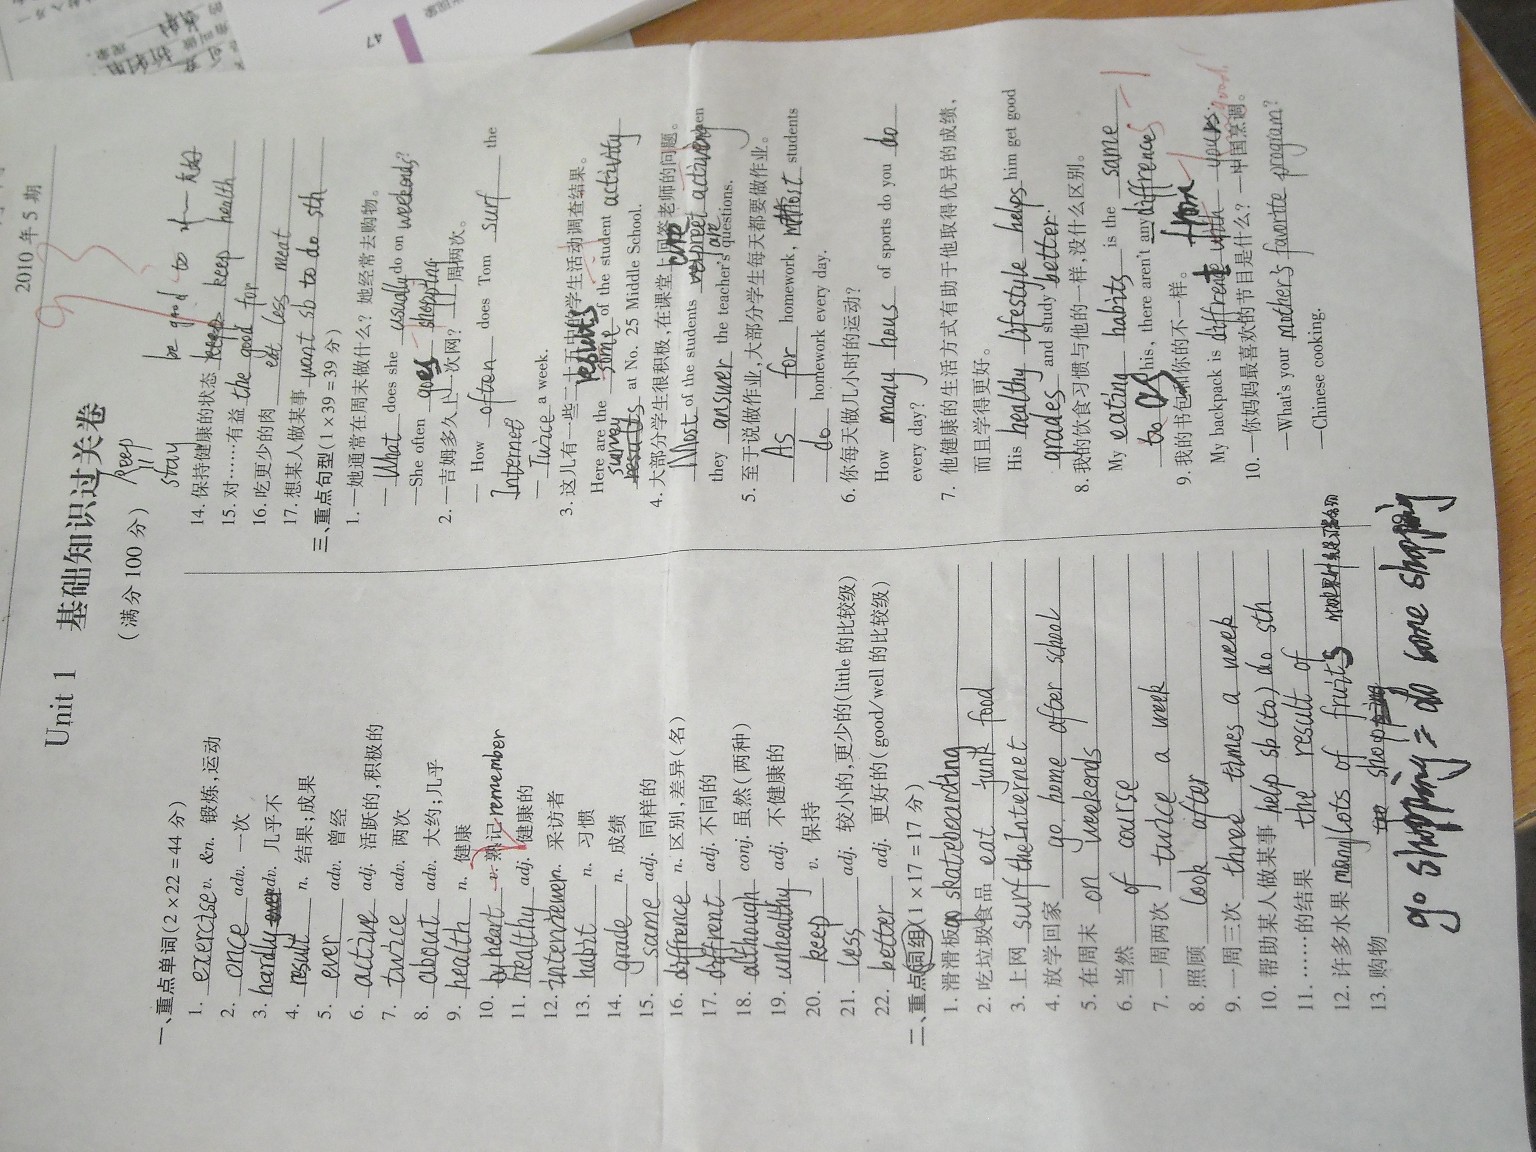 2010 年 5 期
Unit 1 基础知识过关卷
(满分 100 分)
93
一、重点单词(2×22=44 分)
1. exercise v. &n. 锻炼,运动
2. once adv. 一次
3. hardly adv. 几乎不
4. result n. 结果;成果
5. ever adv. 曾经
6. active adj. 活跃的,积极的
7. twice adv. 两次
8. about adv. 大约;几乎
9. health n. 健康
10. by heart v. 熟记 remember
11. healthy adj. 健康的
12. n. 采访者
13. habit n. 习惯
14. grade n. 成绩
15. same adj. 同样的
16. diffrence n. 区别,差异(名)
17. diffrent adj. 不同的
18. although conj. 虽然(两种)
19. unhealthy adj. 不健康的
20. keep v. 保持
21. less adj. 较小的,更少的(little 的比较级)
22. better adj. 更好的(good/well 的比较级)
二、重点词组(1×17=17 分)
1. 滑滑板 go skateboarding
2. 吃垃圾食品 eat junk food
3. 上网 surf the Internet
4. 放学回家 go home after school
5. 在周末 on weekends
6. 当然 of course
7. 一周两次 twice a week
8. 照顾 look after
9. 一周三次 three times a week
10. 帮助某人做某事 help sb (to) do sth
11. ……的结果 the result of
12. 许多水果 many/lots of fruits
13. 购物 shopping
go shopping = do some shopping
keep
stay be good to 对—友好
14. 保持健康的状态 keep keep health
15. 对……有益 the good for
16. 吃更少的肉 eat less meat
17. 想某人做某事 want sb to do sth
三、重点句型(1×39=39 分)
1. —她通常在周末做什么? 她经常去购物。
— What does she usually do on weekends?
—She often goes shopping
2. —吉姆多久上一次网? —一周两次。
— How often does Tom surf the
Internet
— Twice a week.
3. 这儿有一些二十五中的学生活动调查结果。
results
Here are the some of the student activity
survey results at No. 25 Middle School.
4. 大部分学生很积极,在课堂上回答老师的问题。
Most of the students are active when
they answer the teacher's questions.
5. 至于说做作业,大部分学生每天都要做作业。
As for homework, most students
do homework every day.
6. 你每天做几小时的运动?
How many hous of sports do you do
every day?
7. 他健康的生活方式有助于他取得优异的成绩,
而且学得更好。
His healthy lifestyle helps him get good
grades and study better.
8. 我的饮食习惯与他的一样,没什么区别。
My eating habits is the same -1
as his, there aren't any diffrences
9. 我的书包和你的不一样。
My backpack is diffrent from yours.
10. —你妈妈最喜欢的节目是什么? —中国烹调。
—What's your mother's favorite program?
—Chinese cooking.
47